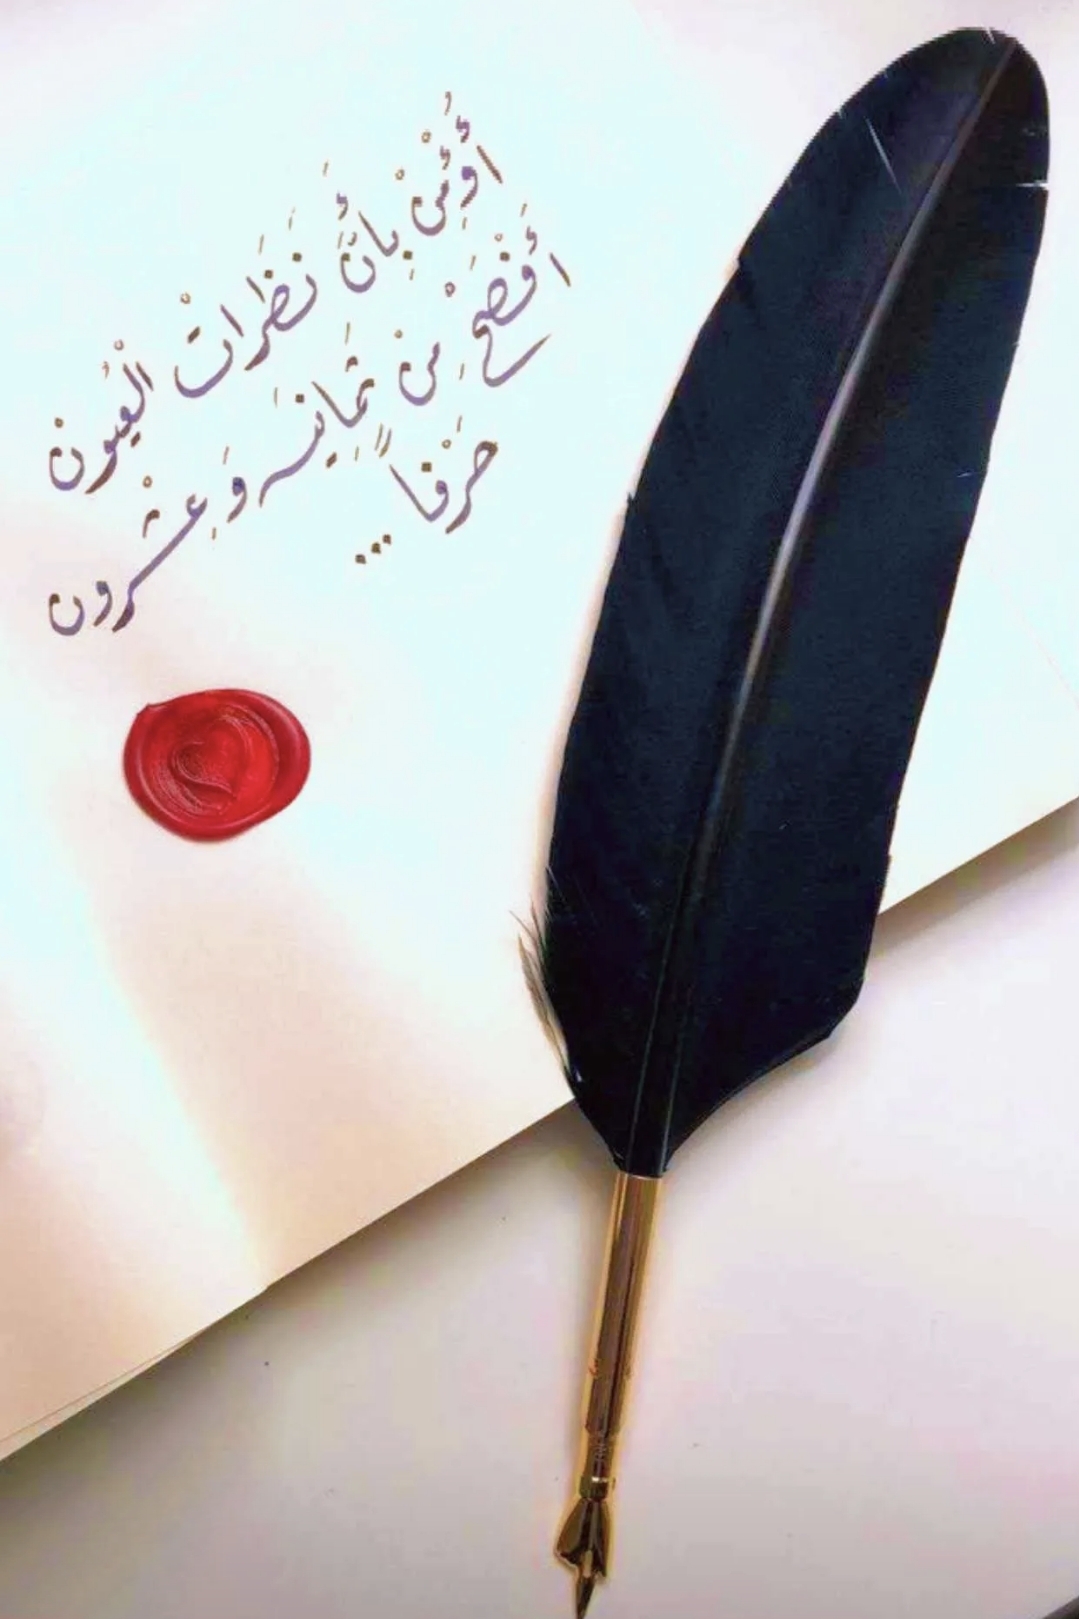 أُؤْمِنْ بِأَنَّ نَظَرَاتْ الْعُيُونْ
أَفْصَحِ مِنْ ثَمَانِيَـ وَ عِشْرون
حَرْفاً ...